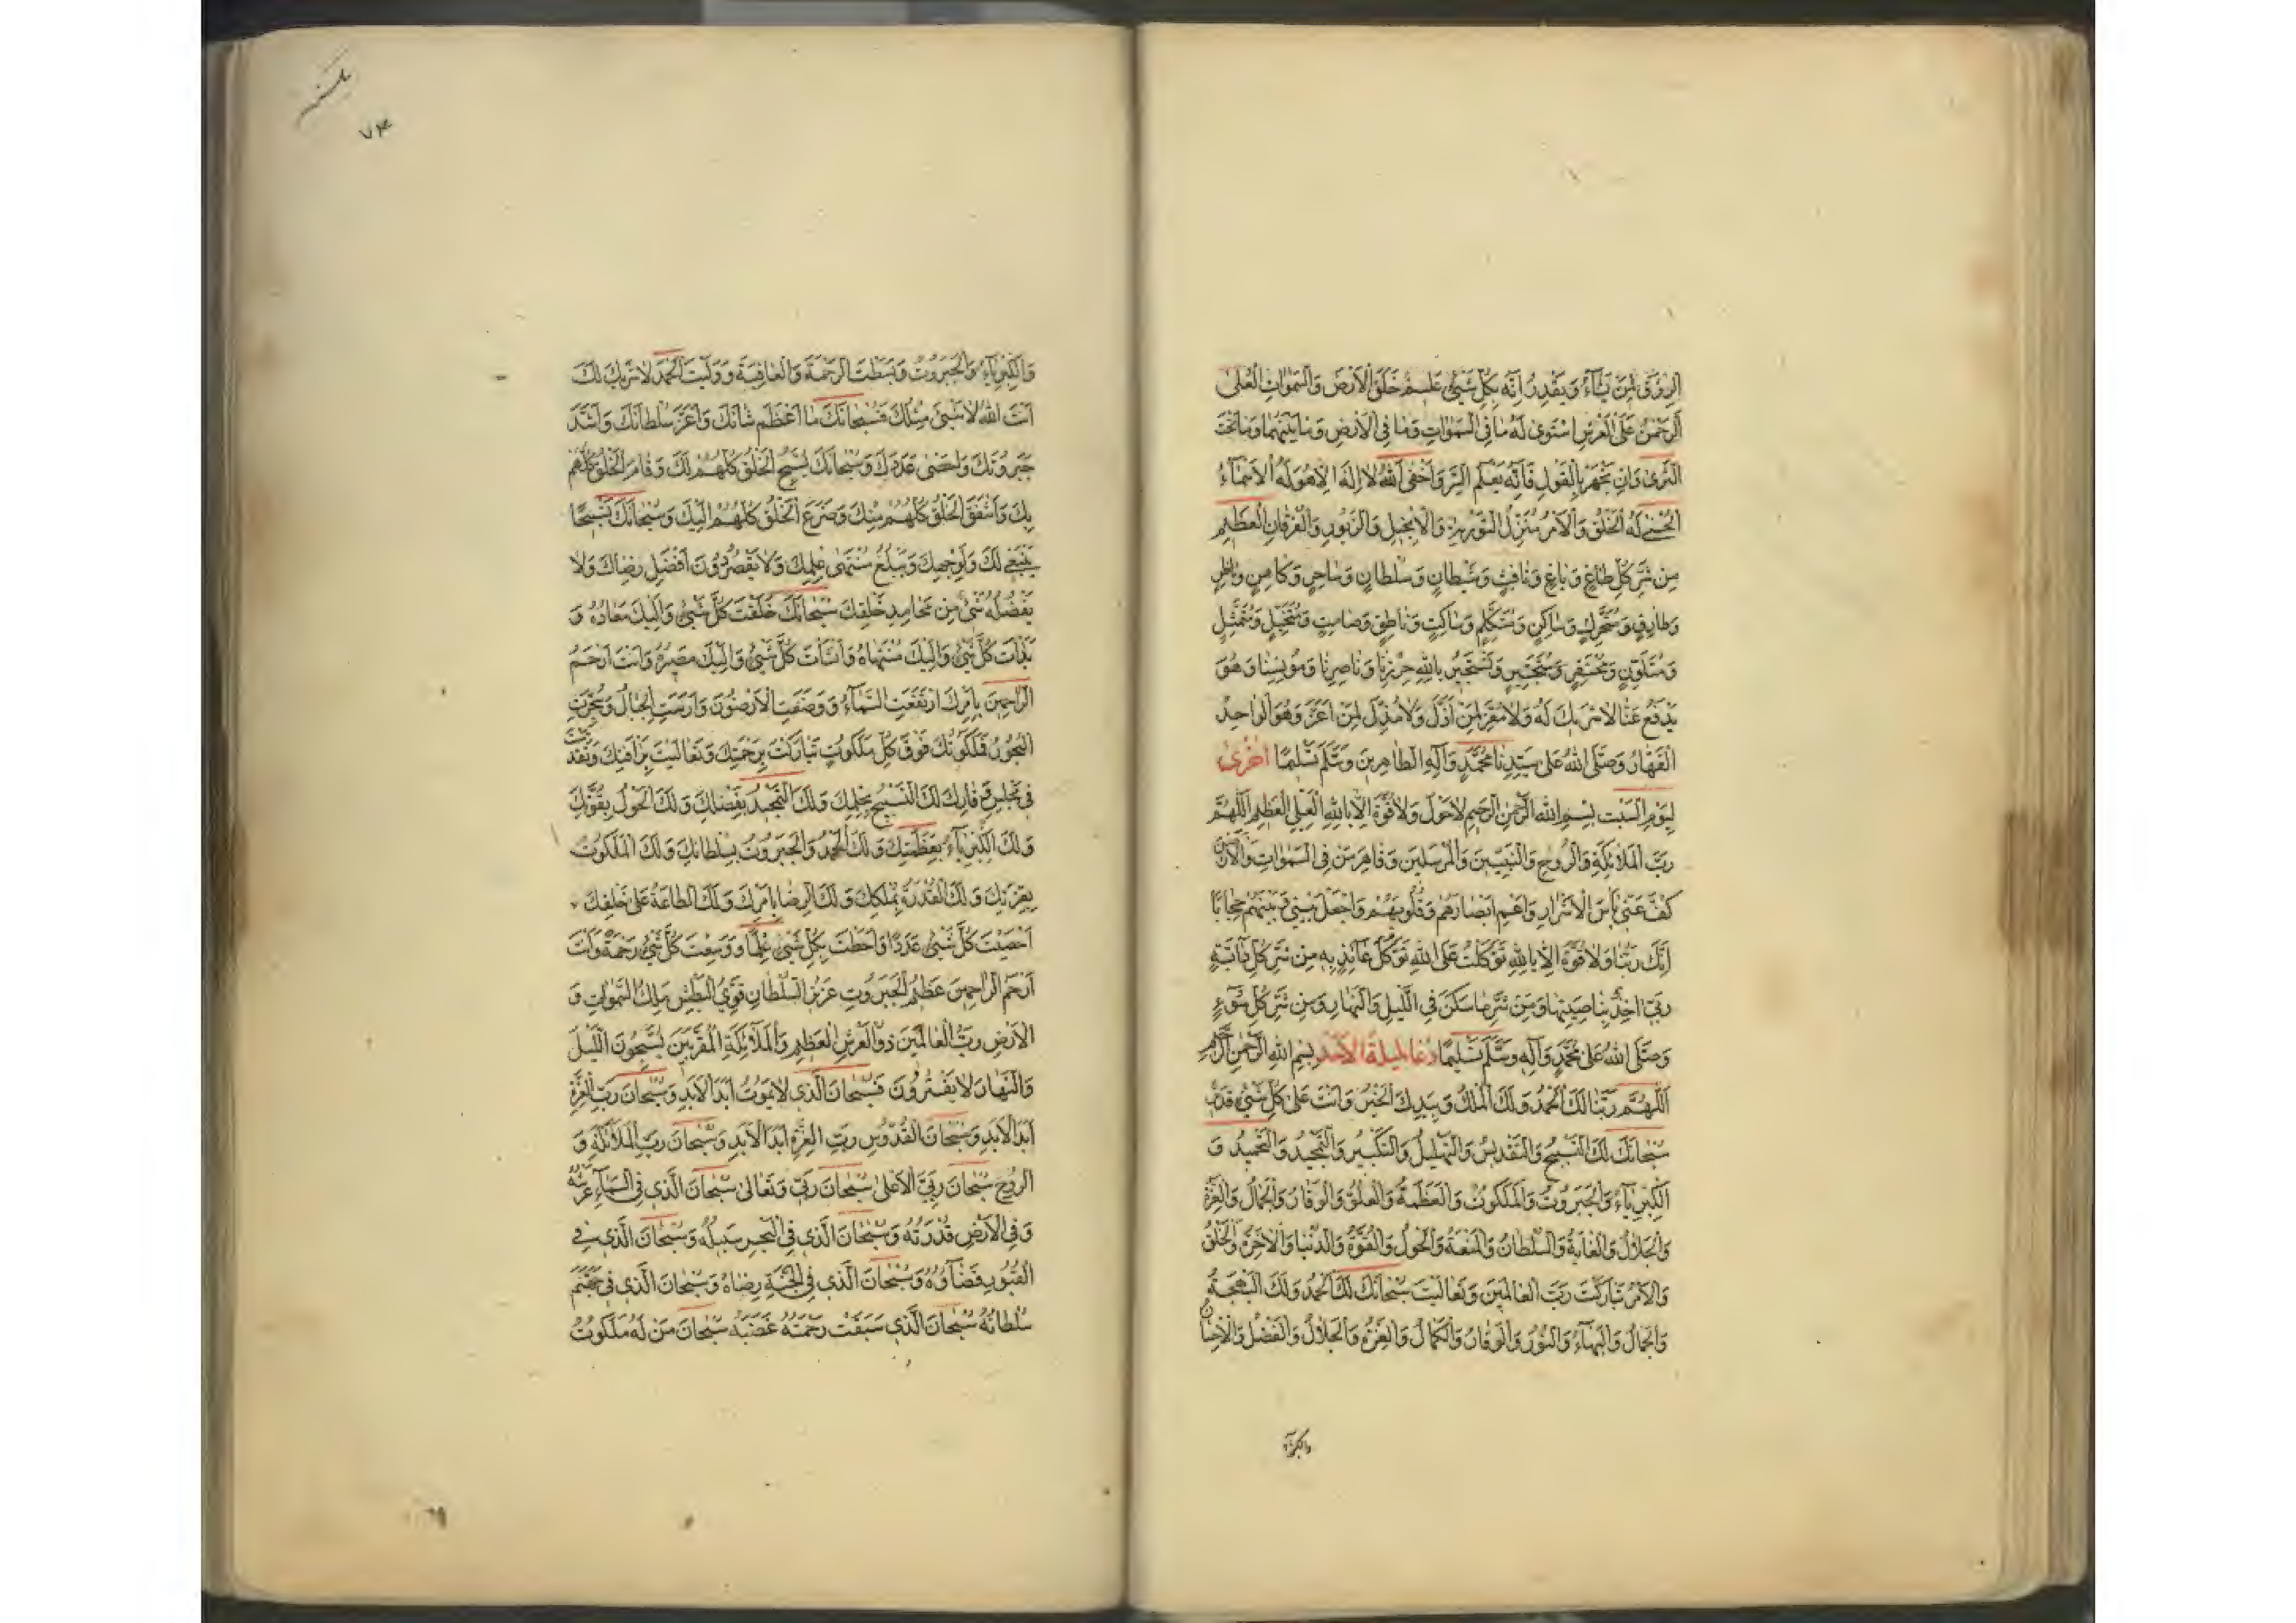 الرِّزْقَ لِمَنْ يَشَآءُ وَيَقْدِرُ اِنَّهُ بِكُلِّ شَيْئٍ عَلِيمٌ خَلَقَ الْاَرْضَ وَالسَّمٰوَاتِ الْعُلىٰ
اَلرَّحْمٰنُ عَلَى الْعَرْشِ اسْتَوىٰ لَهُ مَا فِى السَّمٰوَاتِ وَمَا فِى الْاَرْضِ وَمَا بَيْنَهُمَا وَمَا تَحْتَ
الثَّرىٰ وَاِنْ تَجْهَرْ بِالْقَوْلِ فَاِنَّهُ يَعْلَمُ السِّرَّ وَاَخْفىٰ اَللهُ لَا اِلٰهَ اِلَّا هُوَ لَهُ الْاَسْمَآءُ
الْحُسْنىٰ لَهُ الْخَلْقُ وَالْاَمْرُ مُنَزِّلُ التَّوْرٰيةِ وَالْاِنْجِيلِ وَالزَّبُورِ وَالْفُرْقَانِ الْعَظِيمِ
مِنْ شَرِّ كُلِّ طَاغٍ وَبَاغٍ وَنَافِثٍ وَشَيْطَانٍ وَسُلْطَانٍ وَسَاحِرٍ وَكَاهِنٍ وَنَاظِرٍ
وَطَارِقٍ وَمُتَحَرِّكٍ وَسَاكِنٍ وَمُتَكَلِّمٍ وَسَاكِتٍ وَنَاطِقٍ وَصَامِتٍ وَمُتَخَيِّلٍ وَمُتَمَثِّلٍ
وَمُتَلَوِّنٍ وَمُحْتَفِرٍ وَنَسْتَجِيرُ بِاللهِ حِرْزِنَا وَنَاصِرِنَا وَمُونِسِنَا وَهُوَ
يَدْفَعُ عَنَّا لَا شَرِيكَ لَهُ وَلَا مُعِزَّ لِمَنْ اَذَلَّ وَلَا مُذِلَّ لِمَنْ اَعَزَّ وَهُوَ الْوَاحِدُ
الْقَهَّارُ وَصَلَّى اللهُ عَلىٰ سَيِّدِنَا مُحَمَّدٍ وَآلِهِ الطَّاهِرِينَ وَسَلَّمَ تَسْلِيمًا اُخْرىٰ
لِيَوْمِ السَّبْتِ بِسْمِ اللهِ الرَّحْمٰنِ الرَّحِيمِ لَا حَوْلَ وَلَا قُوَّةَ اِلَّا بِاللهِ الْعَلِىِّ الْعَظِيمِ اَللّٰهُمَّ
رَبَّ الْمَلَائِكَةِ وَالرُّوحِ وَالنَّبِيِّينَ وَالْمُرْسَلِينَ وَقَاهِرَ مَنْ فِى السَّمٰوَاتِ وَالْاَرَضِينَ
كُفَّ عَنِّى بَاْسَ الْاَشْرَارِ وَاَعْمِ اَبْصَارَهُمْ وَقُلُوبَهُمْ وَاجْعَلْ بَيْنِى وَبَيْنَهُمْ حِجَابًا
اِنَّكَ رَبُّنَا وَلَا قُوَّةَ اِلَّا بِاللهِ تَوَكَّلْتُ عَلَى اللهِ تَوَكُّلَ عَائِذٍ بِهِ مِنْ شَرِّ كُلِّ دَآبَّةٍ
رَبِّى اٰخِذٌ بِنَاصِيَتِهَا وَمِنْ شَرِّ مَا سَكَنَ فِى اللَّيْلِ وَالنَّهَارِ وَمِنْ شَرِّ كُلِّ سُوٓءٍ
وَصَلَّى اللهُ عَلىٰ مُحَمَّدٍ وَآلِهِ وَسَلَّمَ تَسْلِيمًا دُعَا لَيْلَةِ الْاَحَدِ بِسْمِ اللهِ الرَّحْمٰنِ الرَّحِيمِ
اَللّٰهُمَّ رَبَّنَا لَكَ الْحَمْدُ وَلَكَ الْمُلْكُ وَبِيَدِكَ الْخَيْرُ وَاَنْتَ عَلىٰ كُلِّ شَيْئٍ قَدِيرٌ
سُبْحَانَكَ لَكَ التَّسْبِيحُ وَالتَّقْدِيسُ وَالتَّهْلِيلُ وَالتَّكْبِيرُ وَالتَّمْجِيدُ وَالتَّحْمِيدُ وَ
الْكِبْرِيَآءُ وَالْجَبَرُوتُ وَالْمَلَكُوتُ وَالْعَظَمَةُ وَالْعُلُوُّ وَالْوَقَارُ وَالْجَمَالُ وَالْعِزَّةُ
وَالْجَلَالُ وَالْغَايَةُ وَالسُّلْطَانُ وَالْمَنَعَةُ وَالْحَوْلُ وَالْقُوَّةُ وَالدُّنْيَا وَالْاٰخِرَةُ وَالْخَلْقُ
وَالْاَمْرُ تَبَارَكْتَ رَبَّ الْعَالَمِينَ وَتَعَالَيْتَ سُبْحَانَكَ لَكَ الْحَمْدُ وَلَكَ الْبَهْجَةُ
وَالْجَمَالُ وَالْبَهَآءُ وَالنُّورُ وَالْوَقَارُ وَالْكَمَالُ وَالْعِزَّةُ وَالْجَلَالُ وَالْفَضْلُ وَالْاِحْسَانُ
والكبرياء
٧٤
وَالْكِبْرِيَآءُ وَالْجَبَرُوتُ وَبَسَطْتَ الرَّحْمَةَ وَالْعَافِيَةَ وَوَلَّيْتَ الْحَمْدَ لَا شَرِيكَ لَكَ
اَنْتَ اللهُ لَا شَيْئَ مِثْلُكَ فَسُبْحَانَكَ مَا اَعْظَمَ شَانَكَ وَاَعَزَّ سُلْطَانَكَ وَاَشَدَّ
جَبَرُوتَكَ وَاَحْصىٰ عَدَدَكَ وَسُبْحَانَكَ يُسَبِّحُ الْخَلْقُ كُلُّهُمْ لَكَ وَقَامَ الْخَلْقُ كُلُّهُمْ
بِكَ وَاَشْفَقَ الْخَلْقُ كُلُّهُمْ مِنْكَ وَضَرَعَ الْخَلْقُ كُلُّهُمْ اِلَيْكَ وَسُبْحَانَكَ تَسْبِيحًا
يَنْبَغِى لَكَ وَلِوَجْهِكَ وَيَبْلُغُ مُنْتَهىٰ عِلْمِكَ وَلَا يَقْصُرُ دُونَ اَفْضَلِ رِضَاكَ وَلَا
يَفْضُلُهُ شَيْئٌ مِنْ مَحَامِدِ خَلْقِكَ سُبْحَانَكَ خَلَقْتَ كُلَّ شَيْئٍ وَاِلَيْكَ مَعَادُهُ وَ
بَدَاْتَ كُلَّ شَيْئٍ وَاِلَيْكَ مُنْتَهَاهُ وَاَنْشَاْتَ كُلَّ شَيْئٍ وَاِلَيْكَ مَصِيرُهُ وَاَنْتَ اَرْحَمُ
الرَّاحِمِينَ بِاَمْرِكَ ارْتَفَعَتِ السَّمَآءُ وَوُضِعَتِ الْاَرَضُونَ وَاُرْسِيَتِ الْجِبَالُ وَسُجِّرَتِ
الْبُحُورُ فَمَلَكُوتُكَ فَوْقَ كُلِّ مَلَكُوتٍ تَبَارَكْتَ بِرَحْمَتِكَ وَتَعَالَيْتَ بِرَاْفَتِكَ وَتَقَدَّسْتَ
فِى مَجْلِسِ وَقَارِكَ لَكَ التَّسْبِيحُ بِحِلْمِكَ وَلَكَ التَّمْجِيدُ بِفَضْلِكَ وَلَكَ الْحَوْلُ بِقُوَّتِكَ
وَلَكَ الْكِبْرِيَآءُ بِعَظَمَتِكَ وَلَكَ الْحَمْدُ وَالْجَبَرُوتُ بِسُلْطَانِكَ وَلَكَ الْمَلَكُوتُ
بِعِزَّتِكَ وَلَكَ الْقُدْرَةُ بِمُلْكِكَ وَلَكَ الرِّضَا بِاَمْرِكَ وَلَكَ الطَّاعَةُ عَلىٰ خَلْقِكَ
اَحْصَيْتَ كُلَّ شَيْئٍ عَدَدًا وَاَحَطْتَ بِكُلِّ شَيْئٍ عِلْمًا وَوَسِعْتَ كُلَّ شَيْئٍ رَحْمَةً وَاَنْتَ
اَرْحَمُ الرَّاحِمِينَ عَظِيمُ الْجَبَرُوتِ عَزِيزُ السُّلْطَانِ قَوِىُّ الْبَطْشِ مَلِكُ السَّمٰوَاتِ وَ
الْاَرْضِ رَبُّ الْعَالَمِينَ ذُو الْعَرْشِ الْعَظِيمِ وَالْمَلَآئِكَةِ الْمُقَرَّبِينَ يُسَبِّحُونَ اللَّيْلَ
وَالنَّهَارَ لَا يَفْتُرُونَ فَسُبْحَانَ الَّذِى لَا يَمُوتُ اَبَدَ الْاَبَدِ وَسُبْحَانَ رَبِّ الْعِزَّةِ
اَبَدَ الْاَبَدِ وَسُبْحَانَ الْقُدُّوسِ رَبِّ الْعِزَّةِ اَبَدَ الْاَبَدِ وَسُبْحَانَ رَبِّ الْمَلَآئِكَةِ وَ
الرُّوحِ سُبْحَانَ رَبِّىَ الْاَعْلىٰ سُبْحَانَ رَبِّى وَتَعَالىٰ سُبْحَانَ الَّذِى فِى السَّمَآءِ عَرْشُهُ
وَفِى الْاَرْضِ قُدْرَتُهُ وَسُبْحَانَ الَّذِى فِى الْبَحْرِ سَبِيلُهُ وَسُبْحَانَ الَّذِى فِى
الْقُبُورِ قَضَآؤُهُ وَسُبْحَانَ الَّذِى فِى الْجَنَّةِ رِضَاهُ وَسُبْحَانَ الَّذِى فِى جَهَنَّمَ
سُلْطَانُهُ سُبْحَانَ الَّذِى سَبَقَتْ رَحْمَتُهُ غَضَبَهُ سُبْحَانَ مَنْ لَهُ مَلَكُوتُ